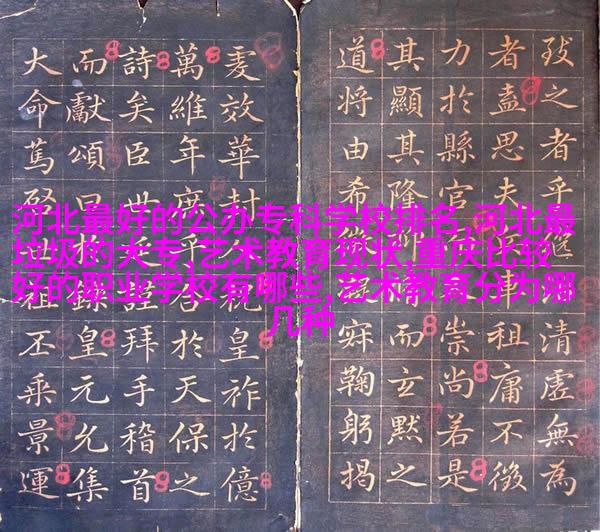 河北最好的公办专科学校排名,河北最
垃圾的大专,艺术教育现状,重庆比较
好的职业学校有哪些,艺术教育分为哪
几种
致之者乎清虛無為
者盍思夫車祖庸不徵
力於縣官崇尚若是
其顯其隆而玄默之
道將由希鞠躬揭
虔效華封祝皇祚於億
萬維年於天保之
詩矣臣世拜手稽首
而獻頌曰皇元允集
大命篤祖丕乘景運